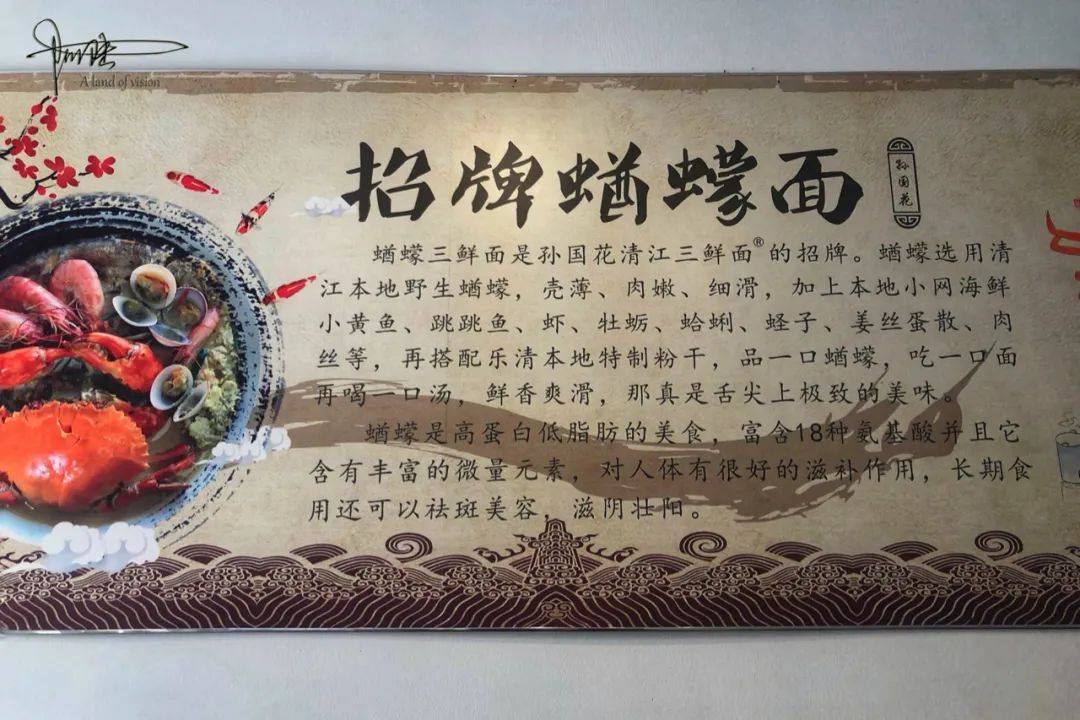 A land of vision
招牌蝤蠓面
孙国花
蝤蠓三鲜面是孙国花清江三鲜面®的招牌。蝤蠓选用清
江本地野生蝤蠓，壳薄、肉嫩、细滑，加上本地小网海鲜
小黄鱼、跳跳鱼、虾、牡蛎、蛤蜊、蛏子、姜丝蛋散、肉
丝等，再搭配乐清本地特制粉干，品一口蝤蠓，吃一口面
再喝一口汤，鲜香爽滑，那真是舌尖上极致的美味。
蝤蠓是高蛋白低脂肪的美食，富含18种氨基酸并且它
含有丰富的微量元素，对人体有很好的滋补作用，长期食
用还可以祛斑美容，滋阴壮阳。